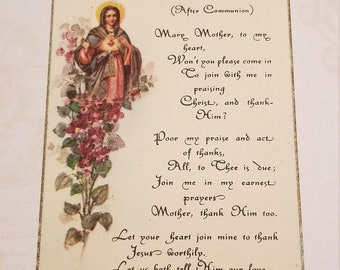 (After Communion)
Mary Mother, to my
heart,
Won't you please come in
To join with me in
praising
Christ, and thank-
Him?
Poor my praise and act
of thanks,
All, to Thee is due;
Join me in my earnest
prayers
Mother, thank Him too.
Let your heart join mine to thank
Jesus worthily,
Let us both tell Him our love